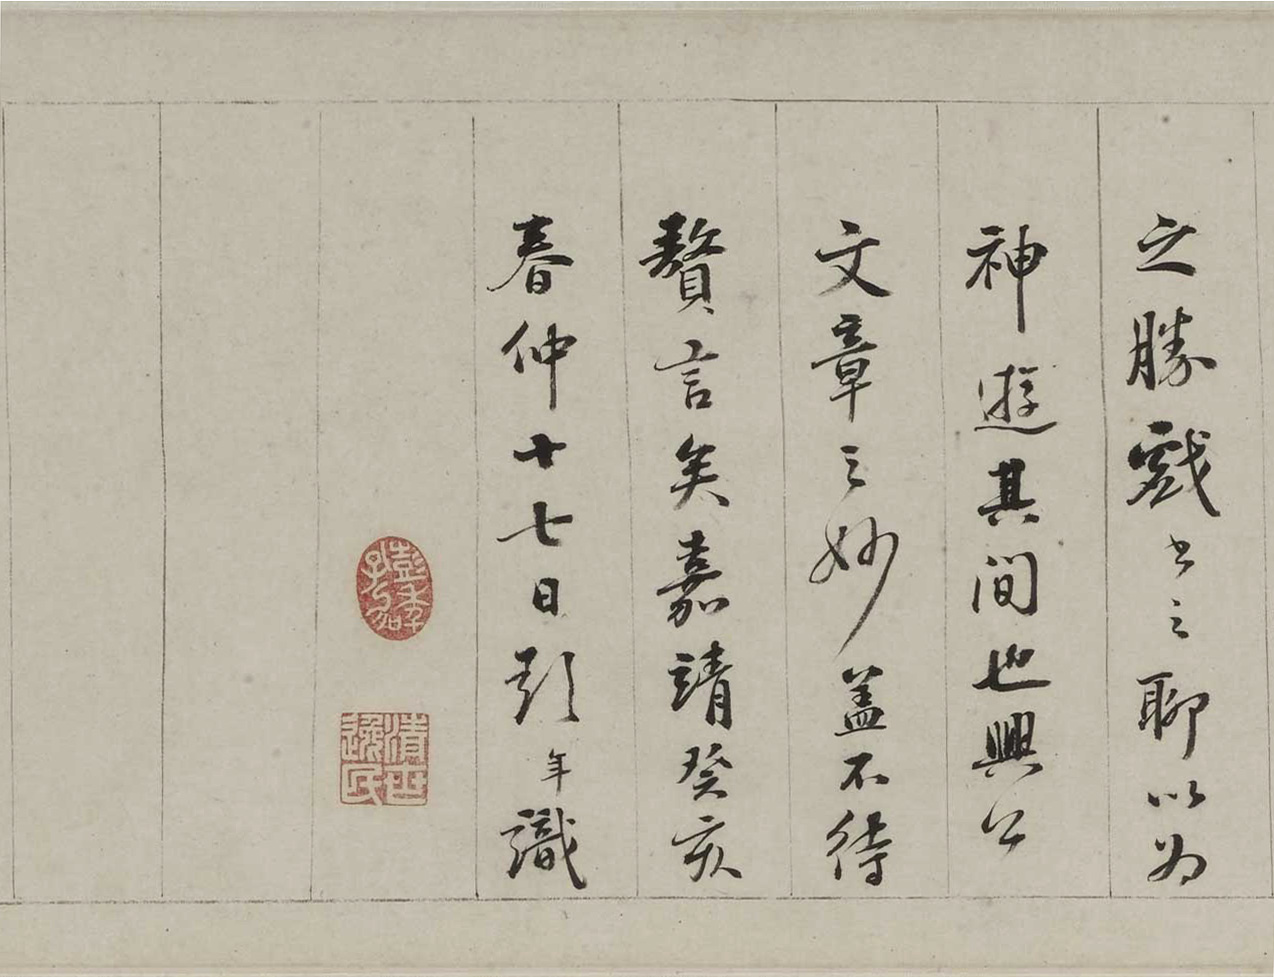 之勝戲書之聊以為
神遊其間也興公
文章之妙盖不待
贅言矣嘉靖癸亥
春仲十七日彭年識
彭年孔加
清世逸民